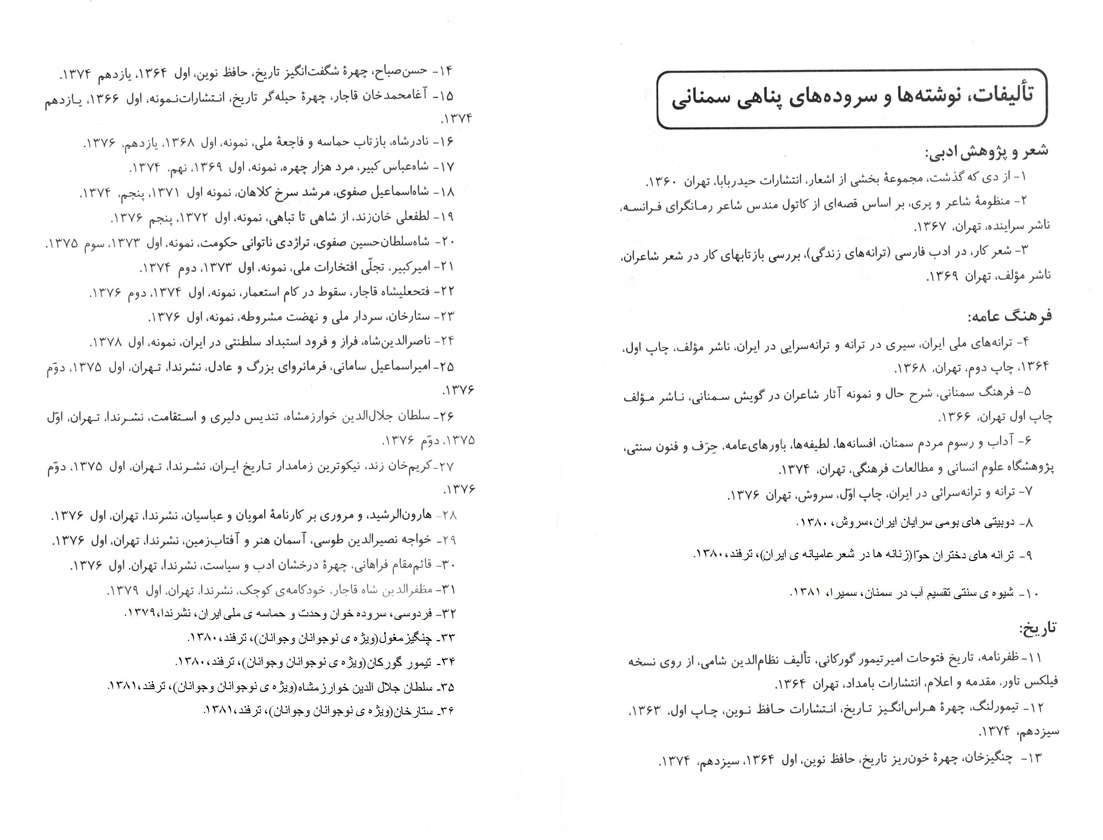 تألیفات، نوشته‌ها و سروده‌های پناهی سمنانی
شعر و پژوهش ادبی:
۱- از دی که گذشت، مجموعهٔ بخشی از اشعار، انتشارات حیدربابا، تهران ۱۳۶۰.
۲- منظومهٔ شاعر و پری، بر اساس قصه‌ای از کاتول مندس شاعر رمانگرای فرانسه،
ناشر سراینده، تهران، ۱۳۶۷.
۳- شعر کار، در ادب فارسی (ترانه‌های زندگی)، بررسی بازتابهای کار در شعر شاعران،
ناشر مؤلف، تهران ۱۳۶۹.
فرهنگ عامه:
۴- ترانه‌های ملی ایران، سیری در ترانه و ترانه‌سرایی در ایران، ناشر مؤلف، چاپ اول،
۱۳۶۴، چاپ دوم، تهران، ۱۳۶۸.
۵- فرهنگ سمنانی، شرح حال و نمونه آثار شاعران در گویش سمنانی، ناشر مؤلف
چاپ اول تهران، ۱۳۶۶.
۶- آداب و رسوم مردم سمنان، افسانه‌ها، لطیفه‌ها، باورهای‌عامه، حِرَف و فنون سنتی،
پژوهشگاه علوم انسانی و مطالعات فرهنگی، تهران، ۱۳۷۴.
۷- ترانه و ترانه‌سرائی در ایران، چاپ اوّل، سروش، تهران ۱۳۷۶.
۸- دوبیتی های بومی سرایان ایران،سروش، ۱۳۸۰.
۹- ترانه های دختران حوّا(زنانه ها در شعر عامیانه ی ایران)، ترفند،۱۳۸۰.
۱۰- شیوه ی سنتی تقسیم آب در سمنان، سمیرا، ۱۳۸۱.
تاریخ:
۱۱- ظفرنامه، تاریخ فتوحات امیرتیمور گورکانی، تألیف نظام‌الدین شامی، از روی نسخه
فیلکس تاور، مقدمه و اعلام، انتشارات بامداد، تهران ۱۳۶۴.
۱۲- تیمورلنگ، چهرهٔ هراس‌انگیز تاریخ، انتشارات حافظ نوین، چاپ اول، ۱۳۶۳،
سیزدهم، ۱۳۷۴.
۱۳- چنگیزخان، چهرهٔ خون‌ریز تاریخ، حافظ نوین، اول ۱۳۶۴، سیزدهم، ۱۳۷۴.
۱۴- حسن‌صباح، چهرهٔ شگفت‌انگیز تاریخ، حافظ نوین، اول ۱۳۶۴، یازدهم ۱۳۷۴.
۱۵- آغامحمدخان قاجار، چهرهٔ حیله‌گر تاریخ، انتشارات‌نمونه، اول ۱۳۶۶، یازدهم
۱۳۷۴.
۱۶- نادرشاه، بازتاب حماسه و فاجعهٔ ملی، نمونه، اول ۱۳۶۸، یازدهم، ۱۳۷۶.
۱۷- شاه‌عباس کبیر، مرد هزار چهره، نمونه، اول ۱۳۶۹، نهم، ۱۳۷۴.
۱۸- شاه‌اسماعیل صفوی، مرشد سرخ کلاهان، نمونه اول ۱۳۷۱، پنجم، ۱۳۷۴.
۱۹- لطفعلی خان‌زند، از شاهی تا تباهی، نمونه، اول ۱۳۷۲، پنجم ۱۳۷۶.
۲۰- شاه‌سلطان‌حسین صفوی، تراژدی ناتوانی حکومت، نمونه، اول ۱۳۷۳، سوم ۱۳۷۵.
۲۱- امیرکبیر، تجلّی افتخارات ملی، نمونه، اول ۱۳۷۳، دوم ۱۳۷۴.
۲۲- فتحعلیشاه قاجار، سقوط در کام استعمار، نمونه، اول ۱۳۷۴، دوم ۱۳۷۶.
۲۳- ستارخان، سردار ملی و نهضت مشروطه، نمونه، اول ۱۳۷۶.
۲۴- ناصرالدین‌شاه، فراز و فرود استبداد سلطنتی در ایران، نمونه، اول ۱۳۷۸.
۲۵- امیراسماعیل سامانی، فرمانروای بزرگ و عادل، نشرندا، تهران، اول ۱۳۷۵، دوّم
۱۳۷۶.
۲۶- سلطان جلال‌الدین خوارزمشاه، تندیس دلیری و استقامت، نشرندا، تهران، اوّل
۱۳۷۵، دوّم ۱۳۷۶.
۲۷-کریم‌خان زند، نیکوترین زمامدار تاریخ ایران، نشرندا، تهران، اول ۱۳۷۵، دوّم
۱۳۷۶.
۲۸- هارون‌الرشید، و مروری بر کارنامهٔ امویان و عباسیان، نشرندا، تهران، اول ۱۳۷۶.
۲۹- خواجه نصیرالدین طوسی، آسمان هنر و آفتاب‌زمین، نشرندا، تهران، اول ۱۳۷۶.
۳۰- قائم‌مقام فراهانی، چهرهٔ درخشان ادب و سیاست، نشرندا، تهران، اول ۱۳۷۶.
۳۱- مظفرالدین شاه قاجار، خودکامه‌ی کوچک، نشرندا، تهران، اول ۱۳۷۹.
۳۲- فردوسی، سروده خوان وحدت و حماسه ی ملی ایران، نشرندا،۱۳۷۹.
۳۳- چنگیزمغول(ویژه ی نوجوانان وجوانان)، ترفند،۱۳۸۰.
۳۴- تیمور گورکان(ویژه ی نوجوانان وجوانان)، ترفند،۱۳۸۰.
۳۵- سلطان جلال الدین خوارزمشاه(ویژه ی نوجوانان وجوانان)، ترفند،۱۳۸۱.
۳۶- ستارخان(ویژه ی نوجوانان وجوانان)، ترفند،۱۳۸۱.